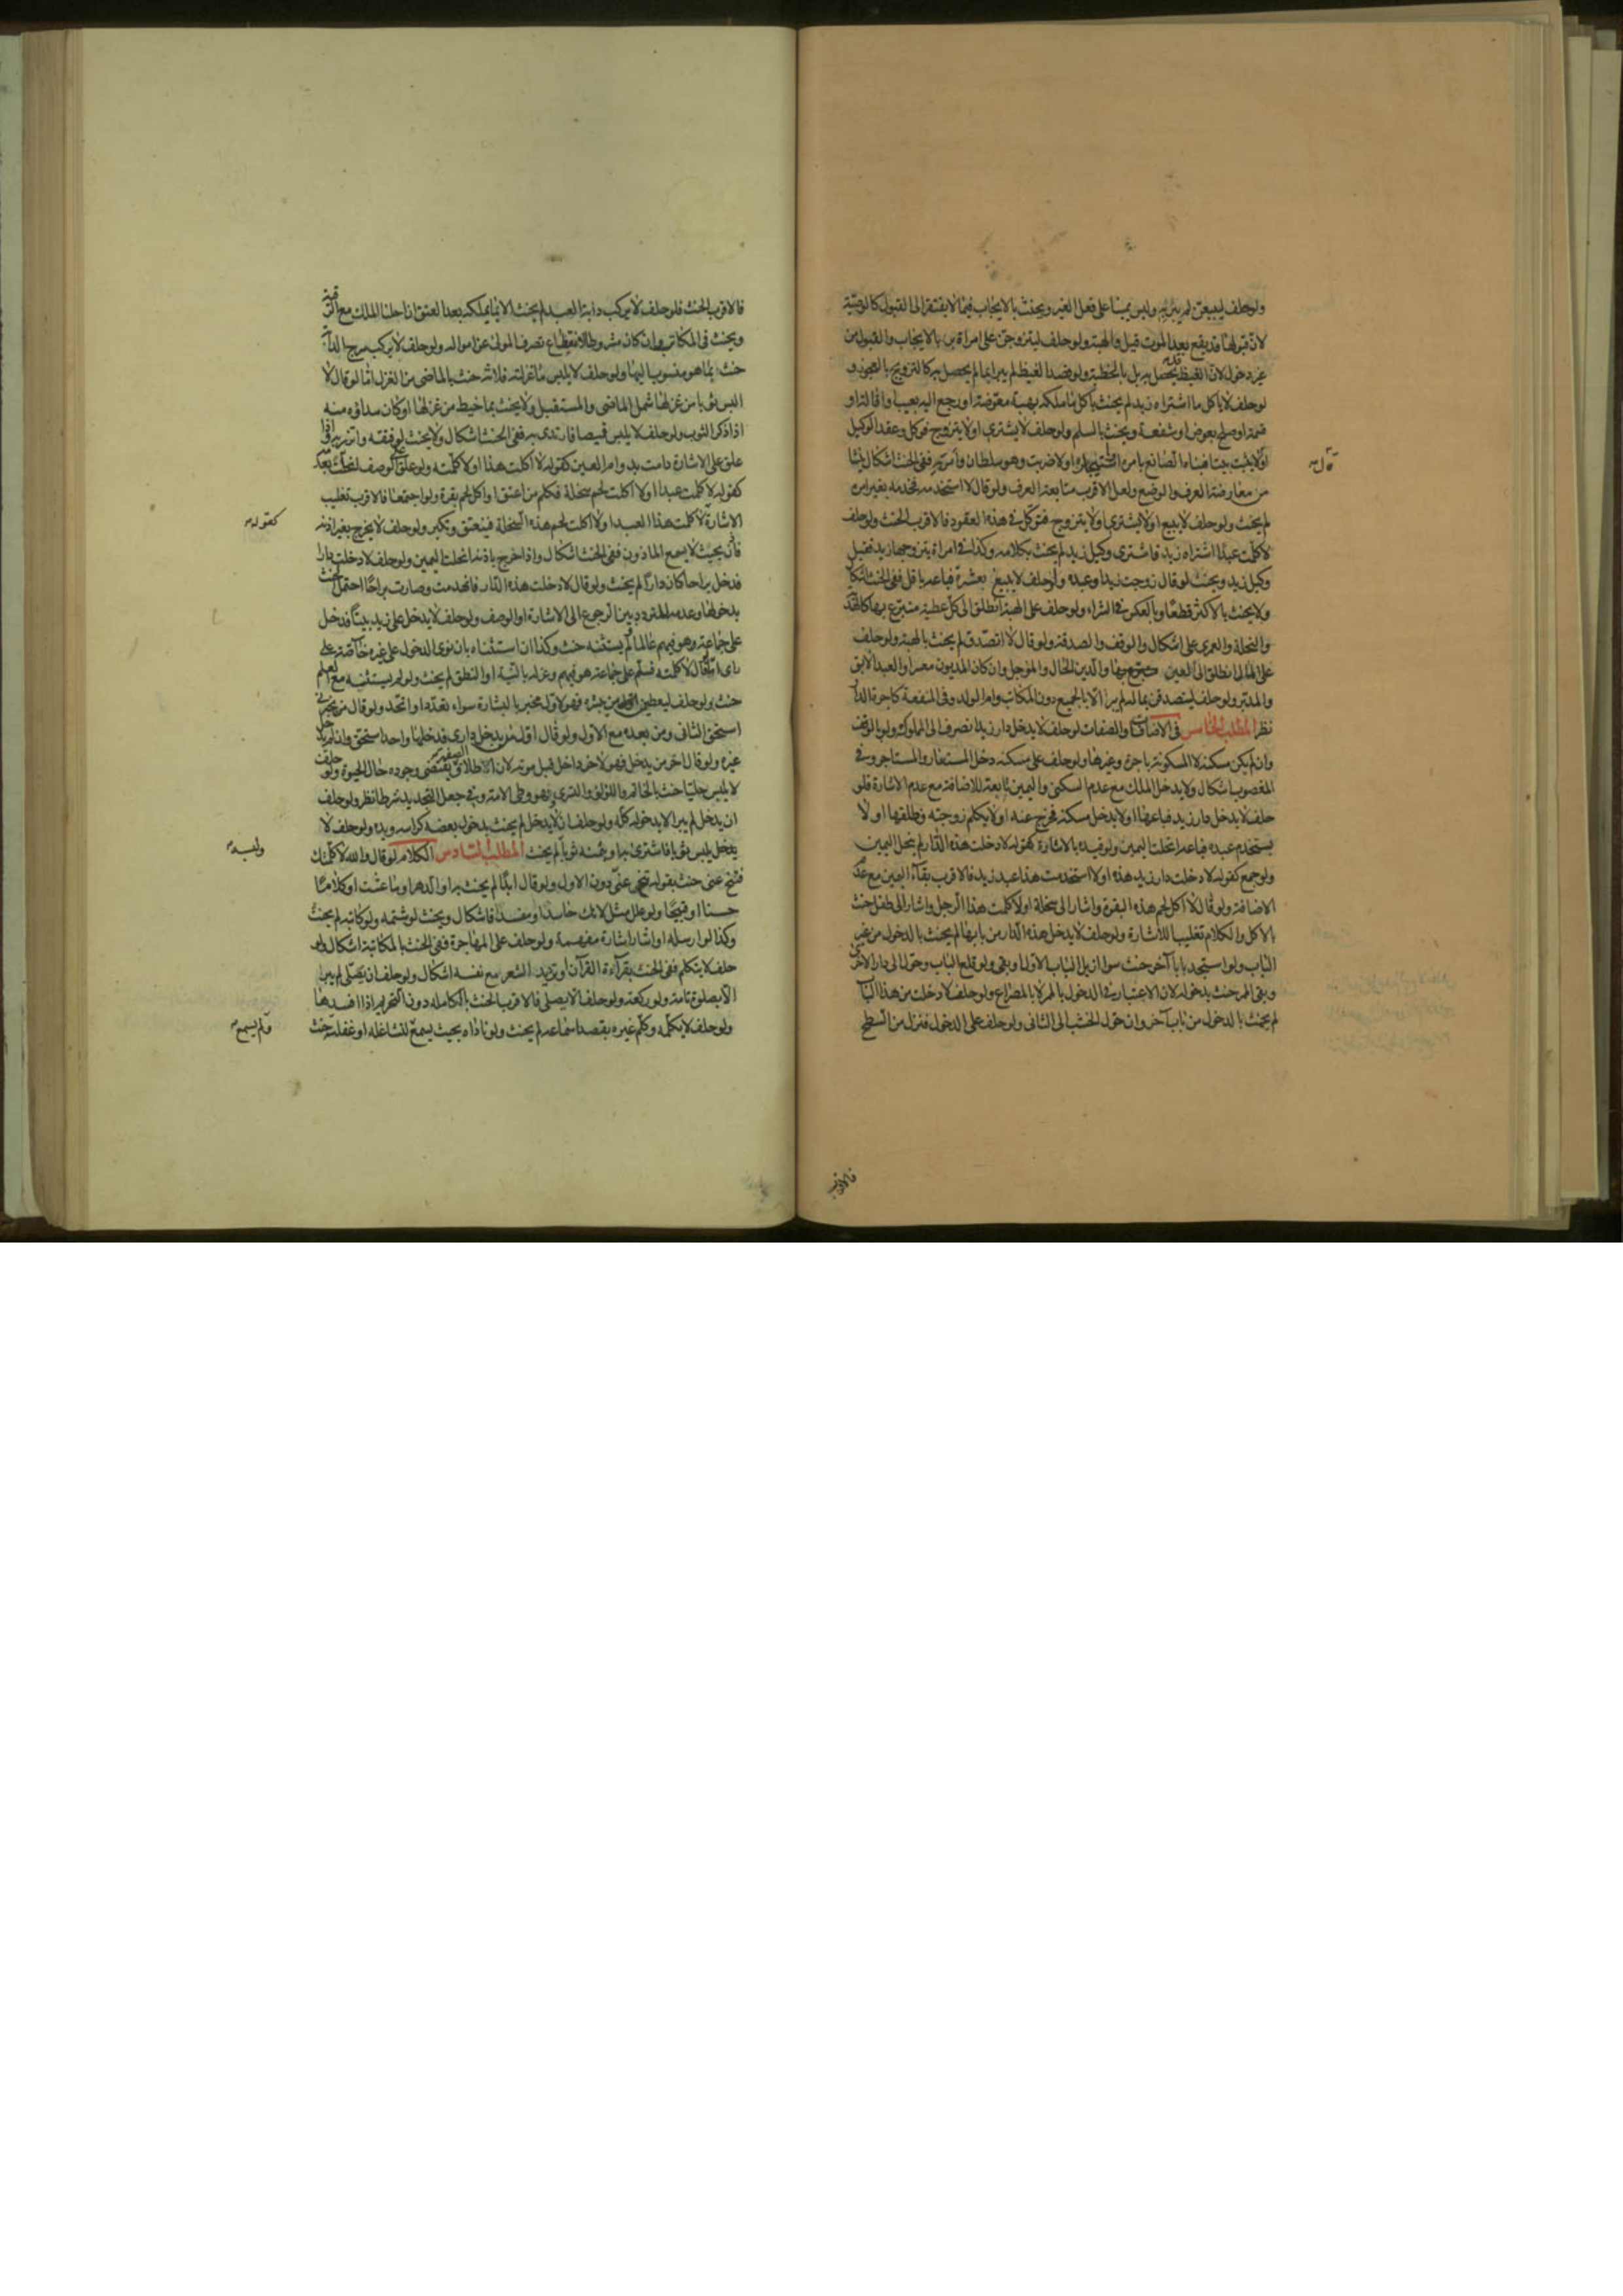 ولو حلف ليبيعن لم يبر به وليس يمينا على فعل الغير ويحنث بالايجاب فيما لا يفتقر الى القبول كالوصية
لان قبولها قد يقع بعد الموت قيل والهبة ولو حلف ليتزوجن على امراة بر بالايجاب والقبول من
غير دخول لان الغيظ قد يحصل به بل بالخطبة ولو قصد الغيظ لم يبر بما لم يحصل به كالتزويج بالعجوز و
لو حلف لا ياكل ما اشتراه زيد لم يحنث باكل ما ملكه بهبة معوضة او رجع اليه بعيب او اقالة او
قسمة او صلح بعوض او شفعة ويحنث بالسلم ولو حلف لا يشتري او لا يتزوج فوكل وعقد الوكيل
او قال بنيت بيتا فبناه الصانع بامره او لا ضربت وهو سلطان وامر به ففي الحنث اشكال ينشا
قال
من معارضة العرف والوضع ولعل الاقرب متابعة العرف ولو قال لا استخدمه فخدمه بغير امره
لم يحنث ولو حلف لا يبيع او لا يشتري او لا يتزوج فتوكل في هذه العقود فالاقرب الحنث ولو حلف
لا كلمت عبدا اشتراه زيد فاشترى وكيل زيد لم يحنث بكلامه وكذا في امراة يتزوجها زيد فقبل
وكيل زيد ويحنث لو قال زوجت زيدا وعبده ولو حلف لا يبيع بعشرة فباعه باقل ففي الحنث اشكال
ولا يحنث بالاكثر قطعا وبالعكس في الشراء ولو حلف على الهبة انطلق الى كل عطية متبرع بها كالهدية
والنحلة والعمرى على اشكال والوقف والصدقة ولو قال لا اتصدق لم يحنث بالهبة ولو حلف
على المال انطلق الى العين والدين الحال والموجل وان كان المديون معسرا والعبد الابق
والمدبر ولو حلف ليتصدقن بماله لم يبر الا بالجميع دون المكاتب وام الولد وفي المنفعة كاجرة الدار
نظر المطلب الخامس في الاضافات والصفات لو حلف لا يدخل دار زيد انصرف الى المملوك ولو بالوقف
وان لم يكن مسكنه لا المسكونة باجرة وغيرها ولو حلف على مسكنه دخل المستعار والمستاجر وفي
المغصوب اشكال ولا يدخل الملك مع عدم السكنى واليمين تابعة للاضافة مع عدم الاشارة فلو
حلف لا يدخل دار زيد فباعها او لا يدخل مسكنه فخرج عنه او لا يكلم زوجته فطلقها او لا
يستخدم عبده فباعه انحلت اليمين ولو قيده بالاشارة كقوله لا دخلت هذه الدار لم ينحل اليمين
ولو جمع كقوله لا دخلت دار زيد هذه او لا استخدمت هذا عبد زيد فالاقرب بقاء اليمين مع عدم
الاضافة ولو قال لا اكل لحم هذه البقرة واشار الى سخلة او لا كلمت هذا الرجل واشار الى طفل حنث
بالاكل والكلام تغليبا للاشارة ولو حلف لا يدخل هذه الدار من بابها لم يحنث بالدخول من غير
الباب ولو استجد بابا آخر حنث سوا ازيل الباب الاول او بقي ولو قلع الباب وحول الى دار اخرى
وبقي الممر حنث بدخوله لان الاعتبار في الدخول بالممر لا بالمصراع ولو حلف لا دخلت من هذا الباب
لم يحنث بالدخول من باب آخر وان حول الخشب الى الثاني ولو حلف على الدخول فنزل من السطح
فالاقرب
فالاقرب الحنث فلو حلف لا يركب دابة العبد لم يحنث الا بما يملكه بعد العتق ان احلنا الملك مع الرقية
ويحنث في المكاتب وان كان مشروطا لانقطاع تصرف المولى عن امواله ولو حلف لا يركب سرج الدابة
حنث بما هو منسوب اليها ولو حلف لا يلبس ما غزلته فلانة حنث بالماضي من الغزل اما لو قال لا
البس ثوبا من غزلها شمل الماضي والمستقبل ولا يحنث بما خيط من غزلها او كان سداؤه منه
اذا ذكر الثوب ولو حلف لا يلبس قميصا فارتدى به ففي الحنث اشكال ولا يحنث لو فتقه واتزر به
علق على الاشارة دامت بدوام العين كقوله لا اكلت هذا او لا كلمته ولو علق على الوصف انحلت بعدمه
كقوله لا كلمت عبدا او لا اكلت لحم سخلة فكلم من اعتق او اكل لحم بقرة ولو اجتمعا فالاقرب تغليب
الاشارة لا كلمت هذا العبد او لا اكلت لحم هذه السخلة فيعتق وتكبر ولو حلف لا يخرج بغير اذنه
كقوله
فاذن بحيث لا يسمع الماذون ففي الحنث اشكال واذا خرج باذنه انحلت اليمين ولو حلف لا دخلت دارا
فدخل براحا كان دارا لم يحنث ولو قال لا دخلت هذه الدار فانهدمت وصارت براحا احتمل الحنث
بدخولها وعدمه للتردد بين الرجوع الى الاشارة او الوصف ولو حلف لا يدخل على زيد بيتا فدخل
على جماعة وهو فيهم عالما لم يستثنه حنث وكذا ان استثناه بان نوى الدخول على غيره خاصة على
راى اما لو قال لا كلمته فسلم على جماعة هو فيهم وعزله بالنية او النطق لم يحنث ولو لم يستثنه مع العلم
حنث ولو حلف ليعطين من يبشره فهو لاول مخبر بالبشارة سواء تعدد او اتحد ولو قال من يخبرني
استحق الثاني ومن بعده مع الاول ولو قال اول من يدخل داري فدخلها واحد استحق وان لم يدخل
غيره ولو قال اخر من يدخل فهو لاخر داخل قبل موته لان الاطلاق يقتضي وجوده حال الحيوة ولو حلف
لا يلبس حليا حنث بالخاتم واللؤلؤ والتسري وهو وطي الامة وفي جعل التخدير شرطا نظر ولو حلف
ان يدخل لم يبر الا بدخوله كله ولو حلف ان لا يدخل لم يحنث بدخول بعضه كراسه ويده ولو حلف لا
يلبس ثوبا فاشترى به او بثمنه ثوبا لم يحنث المطلب السادس الكلام لو قال والله لا كلمتك
ولبسه
فتنح عني حنث بقوله تنح عني دون الاول ولو قال ابدا لم يحنث به او الدهر او ما عشت او كلاما
حسنا او قبيحا ولو علل مثل لانك حاسد او مفسد فاشكال ويحنث لو شتمه ولو كاتبه لم يحنث
وكذا لو ارسله او اشار اشارة مفهمة ولو حلف على المهاجرة ففي الحنث بالمكاتبة اشكال ولو
حلف لا يتكلم ففي الحنث بقراءة القرآن او ترديد الشعر مع نفسه اشكال ولو حلف ان يصلي لم يبر
الا بصلوة تامة ولو ركعة ولو حلف لا يصلي فالاقرب الحنث بالكاملة دون التحريم اذا افسدها
ولو حلف لا يكلمه وكلم غيره بقصد اسماعه لم يحنث ولو ناداه بحيث يسمع لتشاغله او غفلته حنث
فلم يسمع